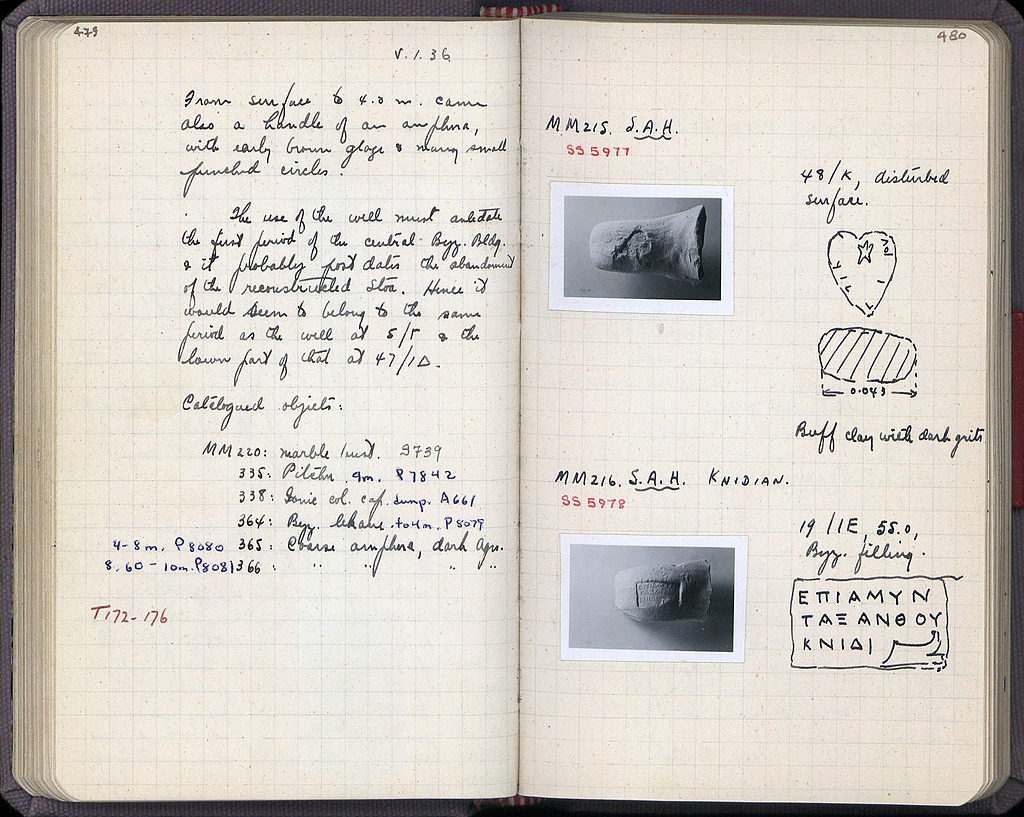 479
V.1.36
From surface to 4.0 m. came
also a handle of an amphora,
with early brown glaze & many small
punched circles.
The use of the well must antedate
the first period of the central Byz. Bldg.
& it probably post dates the abandonment
of the reconstructed Stoa. Hence it
would seem to belong to the same
period as the well at 5/Γ & the
lower part of that at 47/ΙΔ.
Catalogued objects:
MM220: marble bust. S739
335: Pitcher 9m. P7842
338: Ionic col. cap. dump. A661
364: Byz. lekane to 4m. P8079
4-8m. P8080 365: Coarse amphora, dark
8.60-10m. P8081 366: " " " "
T172-176
480
MM215. S.A.H.
SS 5977
48/Κ, disturbed
surface.
0.043
Buff clay with dark grits
MM216. S.A.H. KNIDIAN.
SS 5978
19/ΙΕ, 55.0,
Byz. filling.
ΕΠΙΑΜΥΝ
ΤΑΞΑΝΘΟΥ
ΚΝΙΔΙ